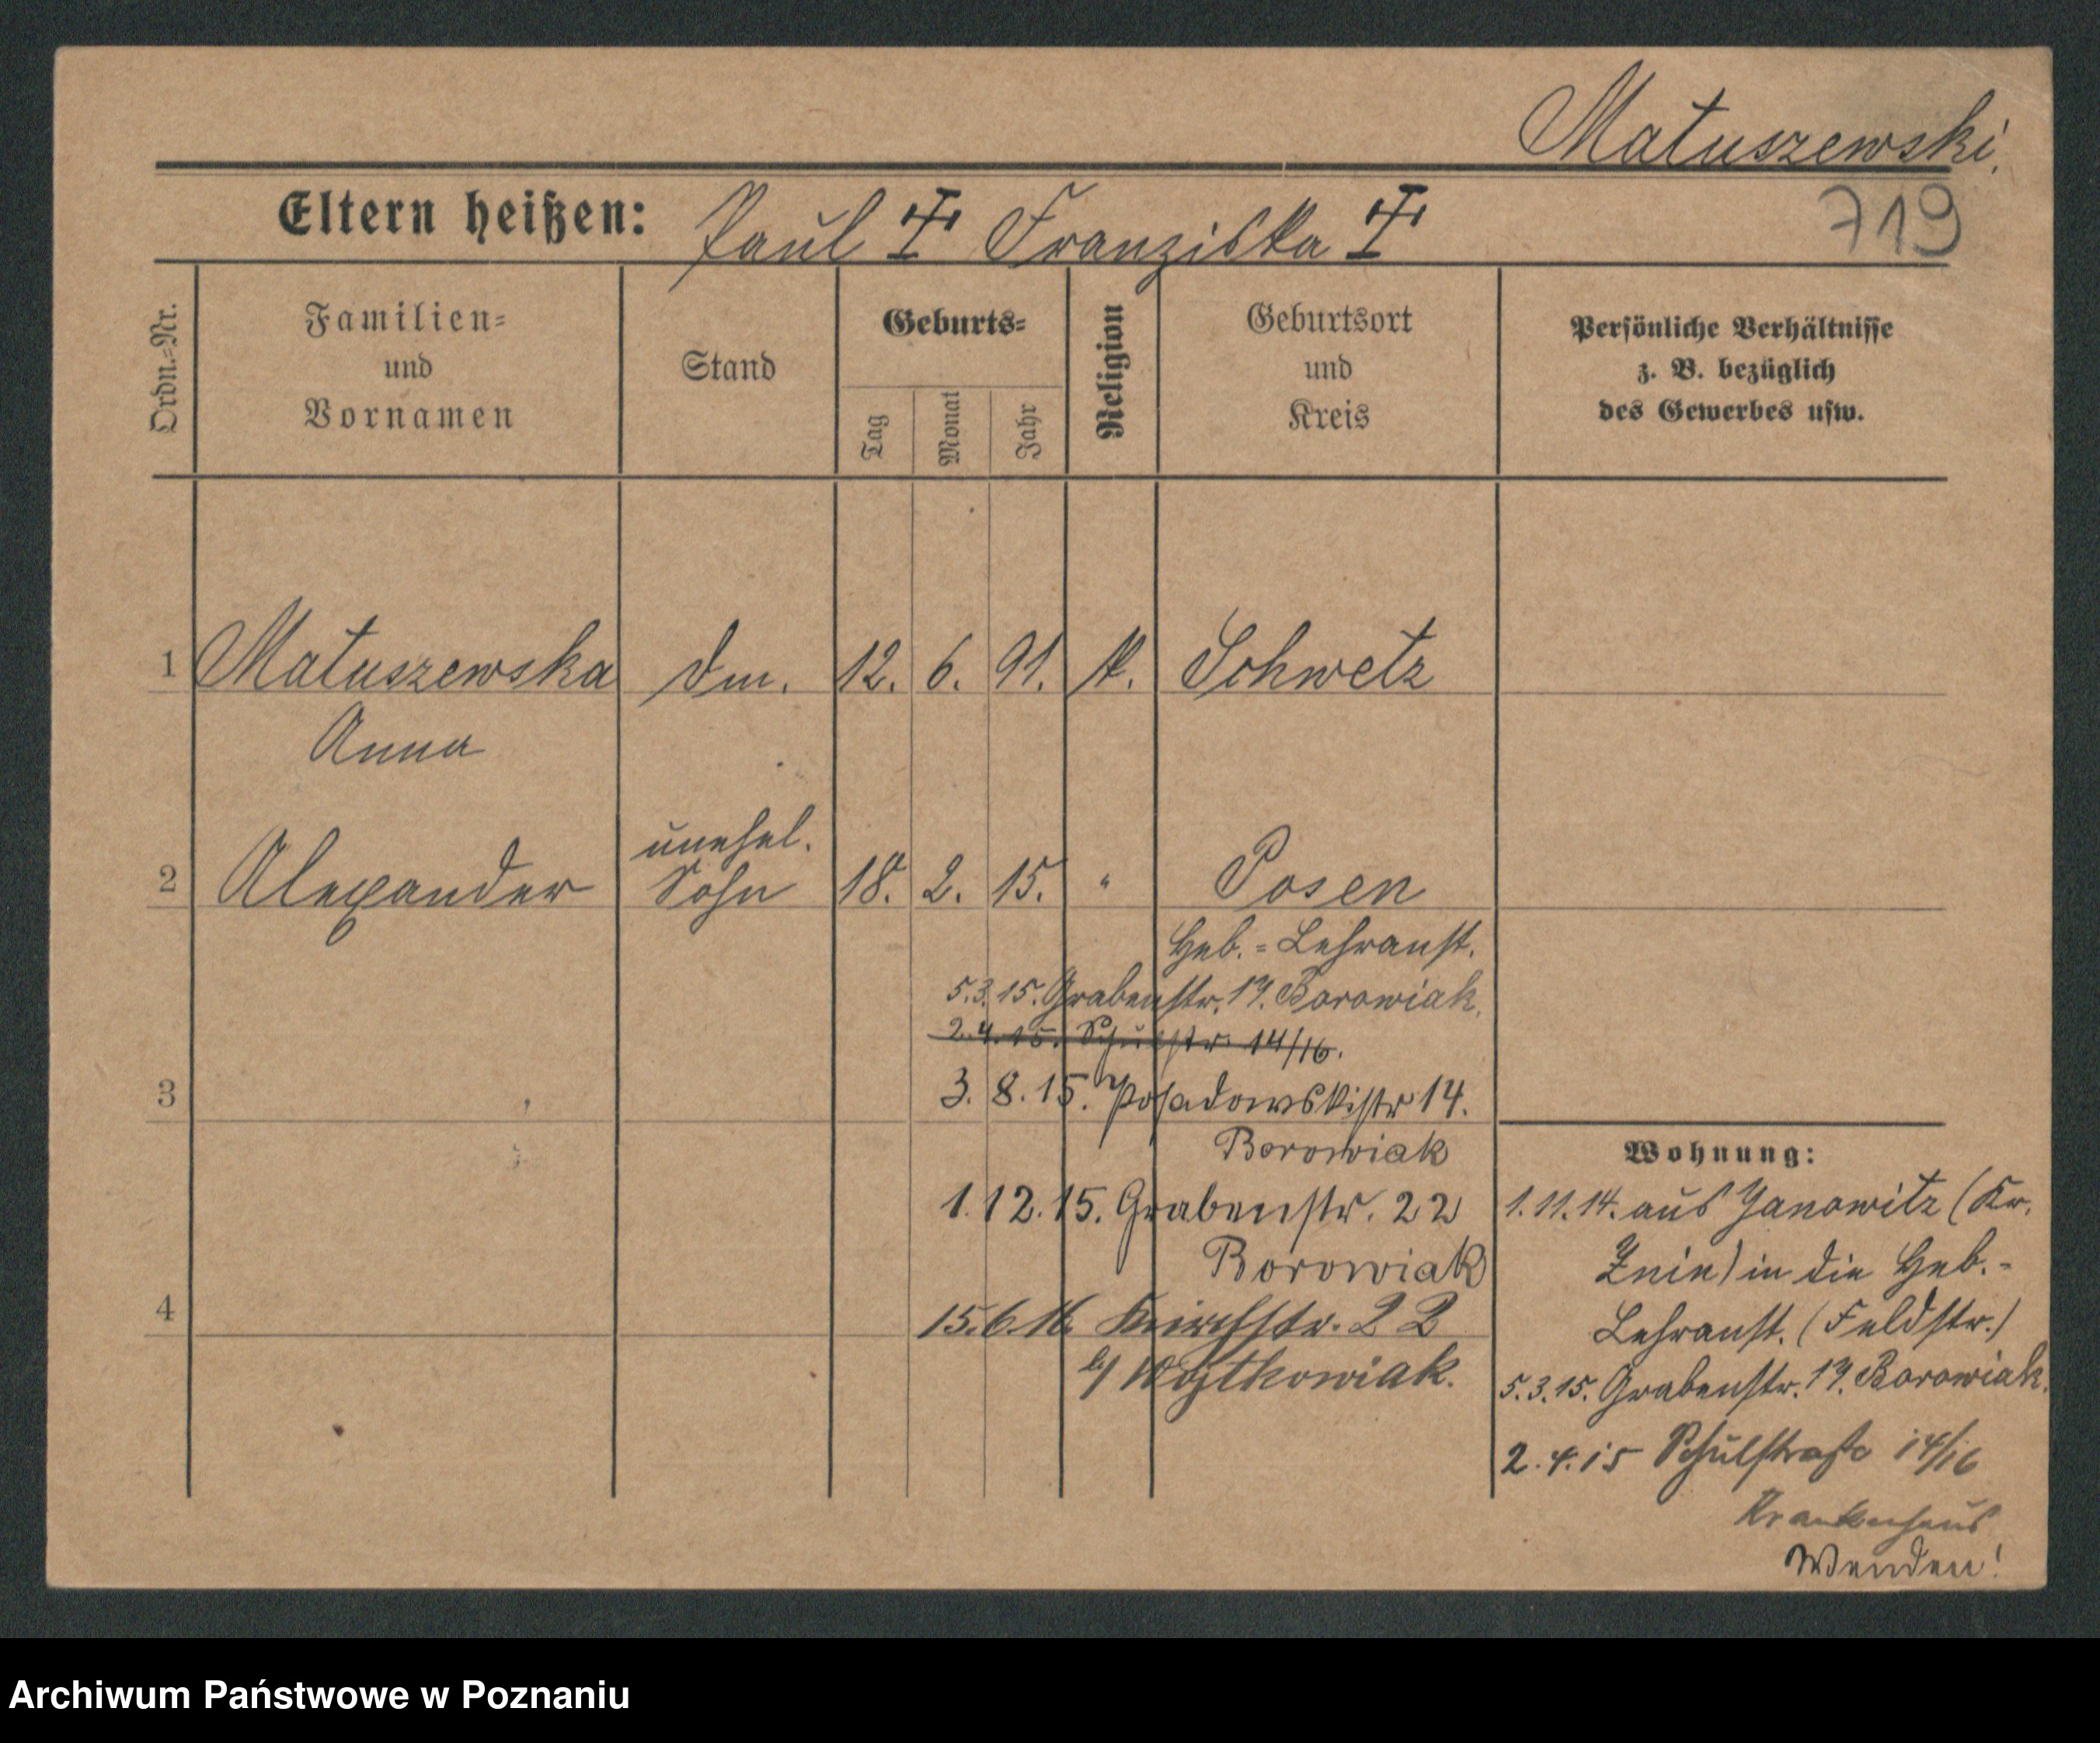 Matuszewski.
719
Eltern heißen: Paul Franziska
Ordn.=Nr.
Familien=
und
Vornamen
Stand
Geburts=
Tag
Monat
Jahr
Religion
Geburtsort
und
Kreis
Persönliche Verhältnisse
z. B. bezüglich
des Gewerbes usw.
1 Matuszewska dm. 12. 6. 91. k. Schwetz
Anna
unehel.
2 Alexander Sohn 18. 2. 15. " Posen
Heb.=Lehranst.
5.3.15. Grabenstr. 17. Borowiak.
2.4.15. Schulstr. 14/16.
3
3. 8. 15. Posadowskistr 14.
Borowiak
1.12.15. Grabenstr. 22
Borowiak
4
15.6.16 22
b/ Wojtkowiak.
Wohnung:
1.11.14. aus Janowitz (Kr.
Znin) in die Heb.=
Lehranst. (Feldstr.)
5.3.15. Grabenstr. 17. Borowiak.
2.4.15 Schulstraße 14/16
Krankenhaus
Wenden!
Archiwum Państwowe w Poznaniu